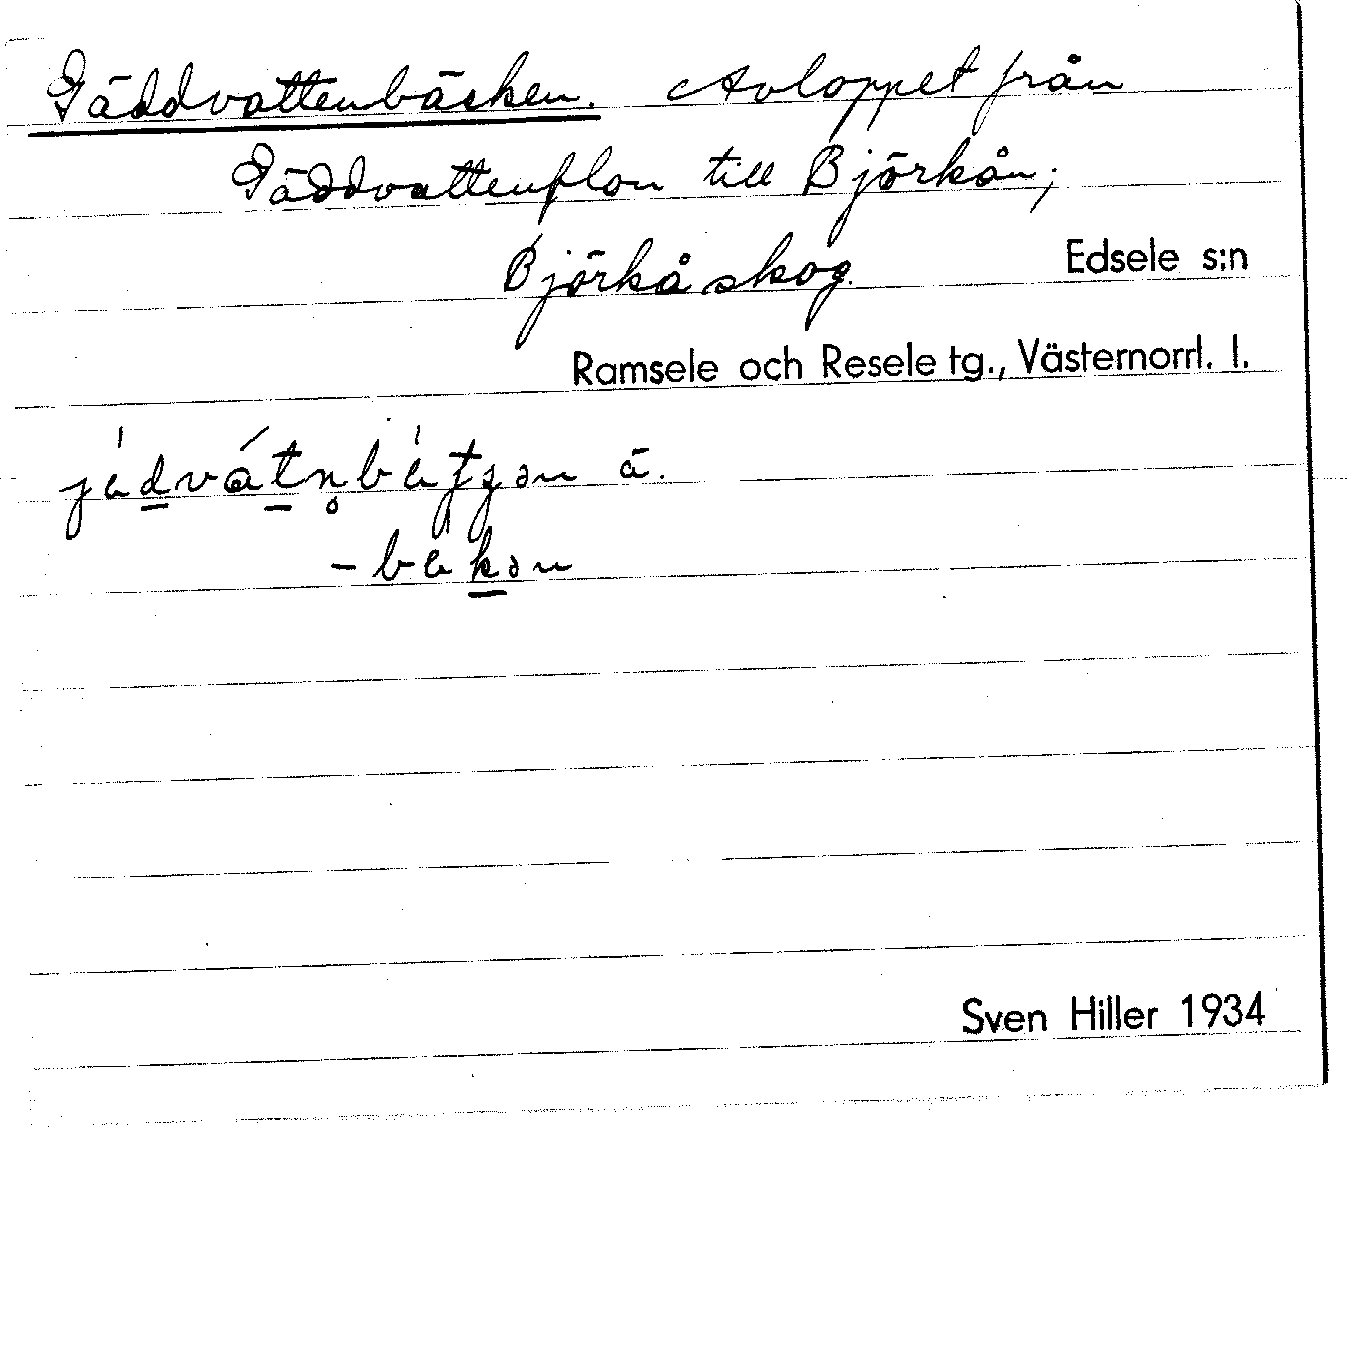 Gäddvattenbäcken. Avloppet från
Gäddvattenflon till Björkån;
Björkåskog. Edsele s:n
Ramsele och Resele tg., Västernorrl. l.
ä.
Sven Hiller 1934